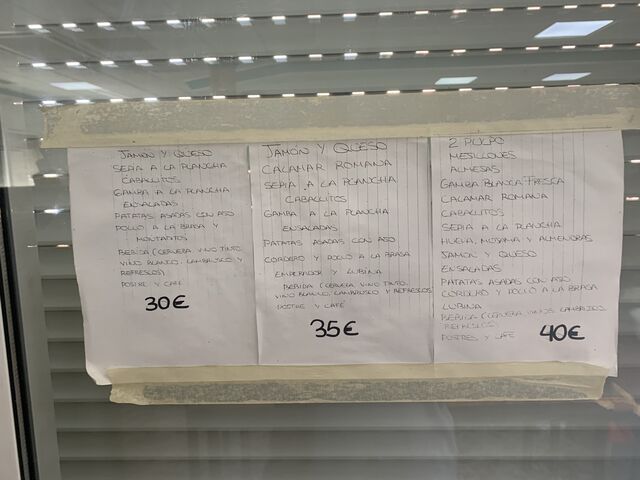 JAMÓN Y QUESO
SEPIA A LA PLANCHA
CABALLITOS
GAMBA A LA PLANCHA
ENSALADAS
PATATAS ASADAS CON ASO
POLLO A LA BRASA Y
MONTADITOS
BEBIDA (CERVEZA VINO TINTO
VINO BLANCO, LAMBRUSCO Y
REFRESCOS)
POSTRE Y CAFE
30€
JAMÓN Y QUESO
CALAMAR ROMANA
SEPIA A LA PLANCHA
CABALLITOS
GAMBA A LA PLANCHA
ENSALADAS
PATATAS ASADAS CON ASO
CORDERO Y POLLO A LA BRASA
EMPERADOR Y LUBINA
BEBIDA (CERVEZA VINO TINTO,
VINO BLANCO, LAMBRUSCO Y REFRESCOS)
POSTRE Y CAFÉ
35€
2 PULPO
MEJILLONES
ALMEJAS
GAMBA BLANCA FRESCA
CALAMAR ROMANA
CABALLITOS
SEPIA A LA PLANCHA
HUEVA, MOJAMA Y ALMENDRAS
JAMÓN Y QUESO
ENSALADAS
PATATAS ASADAS CON ASO
CORDERO Y POLLO A LA BRASA
LUBINA
BEBIDA (CERVEZA VINOS LAMBRUSCO
REFRESCOS)
POSTRES Y CAFÉ
40€